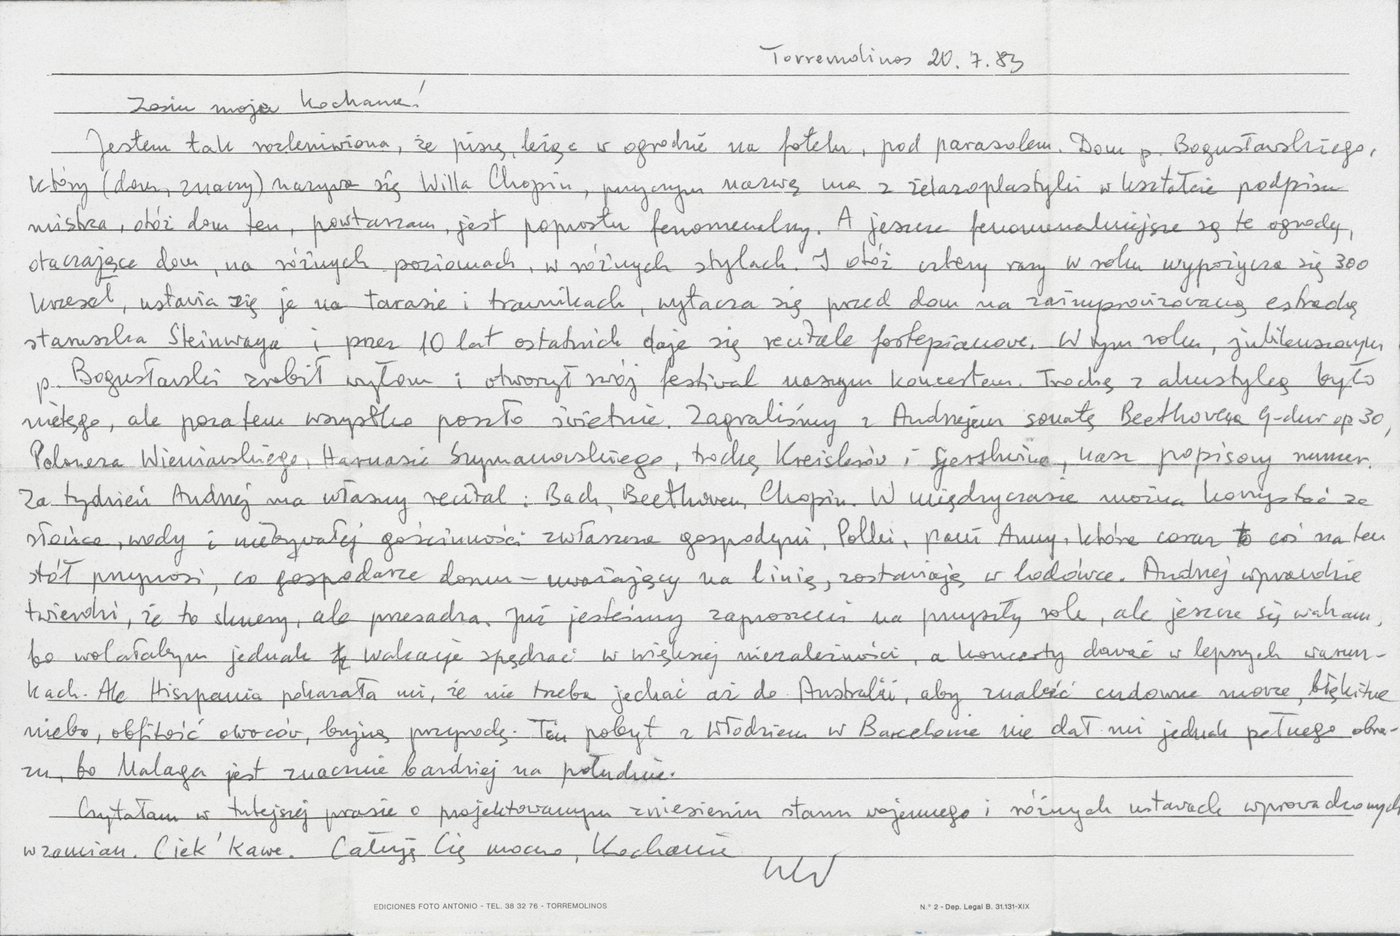 Torremolinos 20.7.83
Zosiu moja Kochana!
Jestem tak rozleniwiona, że piszę, leżąc w ogrodzie na fotelu, pod parasolem. Dom p. Bogusławskiego,
który (dom, znaczy) nazywa się Willa Chopin, przyczym nazwę ma z żelazoplastyki w kształcie podpisu
mistrza, otóż dom ten, powtarzam, jest poprostu fenomenalny. A jeszcze fenomenalniejsze są te ogrody,
otaczające dom, na różnych poziomach, w różnych stylach. I otóż cztery razy w roku wypożycza się 300
krzeseł, ustawia się je na tarasie i trawnikach, wytacza się przed dom na zaimprowizowaną estradę
staruszka Steinwaya i przez 10 lat ostatnich daje się recitale fortepianowe. W tym roku, jubileuszowym
p. Bogusławski zrobił wyłom i otworzył swój festival naszym koncertem. Trochę z akustyką było
nietęgo, ale pozatem wszystko poszło świetnie. Zagraliśmy z Andrzejem sonatę Beethovena G-dur op 30,
Poloneza Wieniawskiego, Harnasie Szymanowskiego, trochę Kreislerów i Gershwina, nasz popisowy numer.
Za tydzień Andrzej ma własny recital: Bach, Beethoven, Chopin. W międzyczasie można korzystać ze
słońca, wody i niebywałej gościnności zwłaszcza gospodyni, Polki, pani Anny, która coraz to coś na ten
stół przynosi, co gospodarze domu - uważający na linię, zostawiają w lodówce. Andrzej wprawdzie
twierdzi, że to sknery, ale przesadza. Już jesteśmy zaproszeni na przyszły rok, ale jeszcze się waham,
bo wolałabym jednak te wakacje spędzać w większej niezależności, a koncerty dawać w lepszych warun-
kach. Ale Hiszpania pokazała mi, że nie trzeba jechać aż do Australii, aby znaleźć cudowne morze, błękitne
niebo, obfitość owoców, bujną przyrodę. Ten pobyt z Włodziem w Barcelonie nie dał mi jednak pełnego obra-
zu, bo Malaga jest znacznie bardziej na południe.
Czytałam w tutejszej prasie o projektowanym zniesieniu stanu wojennego i różnych ustawach wprowadzonych
wzamian. Ciek'kawe. Całuję Cię mocno, Kochanie
EDICIONES FOTO ANTONIO - TEL. 38 32 76 - TORREMOLINOS
N.° 2 - Dep. Legal B. 31.131-XIX